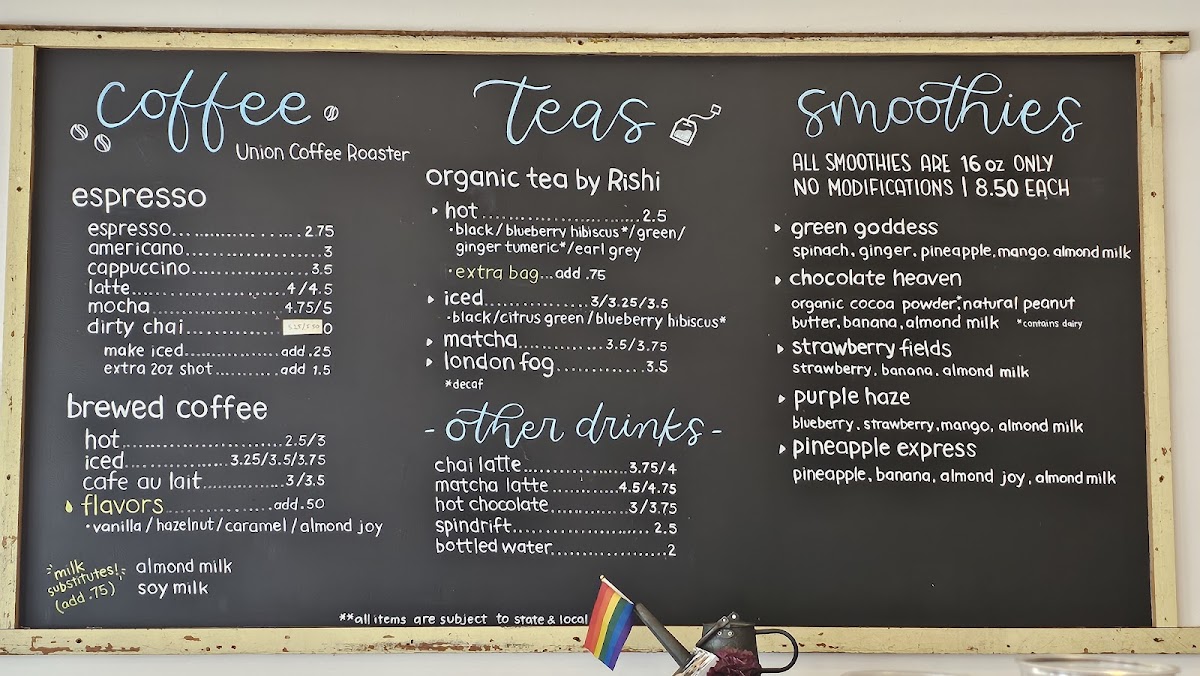 coffee
Union Coffee Roaster
espresso
espresso.....................2.75
americano.....................3
cappuccino.....................3.5
latte.....................4/4.5
mocha.....................4.75/5
dirty chai.....................0
make iced.....................add .25
extra 2oz shot.....................add 1.5
brewed coffee
hot.....................2.5/3
iced.....................3.25/3.5/3.75
cafe au lait.....................3/3.5
flavors.....................add .50
·vanilla/hazelnut/caramel/almond joy
milk
substitutes!
(add .75)
almond milk
soy milk
teas
organic tea by Rishi
hot.....................2.5
·black/blueberry hibiscus*/green/
ginger tumeric*/earl grey
·extra bag...add .75
iced.....................3/3.25/3.5
·black/citrus green/blueberry hibiscus*
matcha.....................3.5/3.75
london fog.....................3.5
*decaf
-other drinks-
chai latte.....................3.75/4
matcha latte.....................4.5/4.75
hot chocolate.....................3/3.75
spindrift.....................2.5
bottled water.....................2
smoothies
ALL SMOOTHIES ARE 16 oz ONLY
NO MODIFICATIONS | 8.50 EACH
green goddess
spinach, ginger, pineapple, mango, almond milk
chocolate heaven
organic cocoa powder,*natural peanut
butter, banana, almond milk *contains dairy
strawberry fields
strawberry, banana, almond milk
purple haze
blueberry, strawberry, mango, almond milk
pineapple express
pineapple, banana, almond joy, almond milk
**all items are subject to state & local